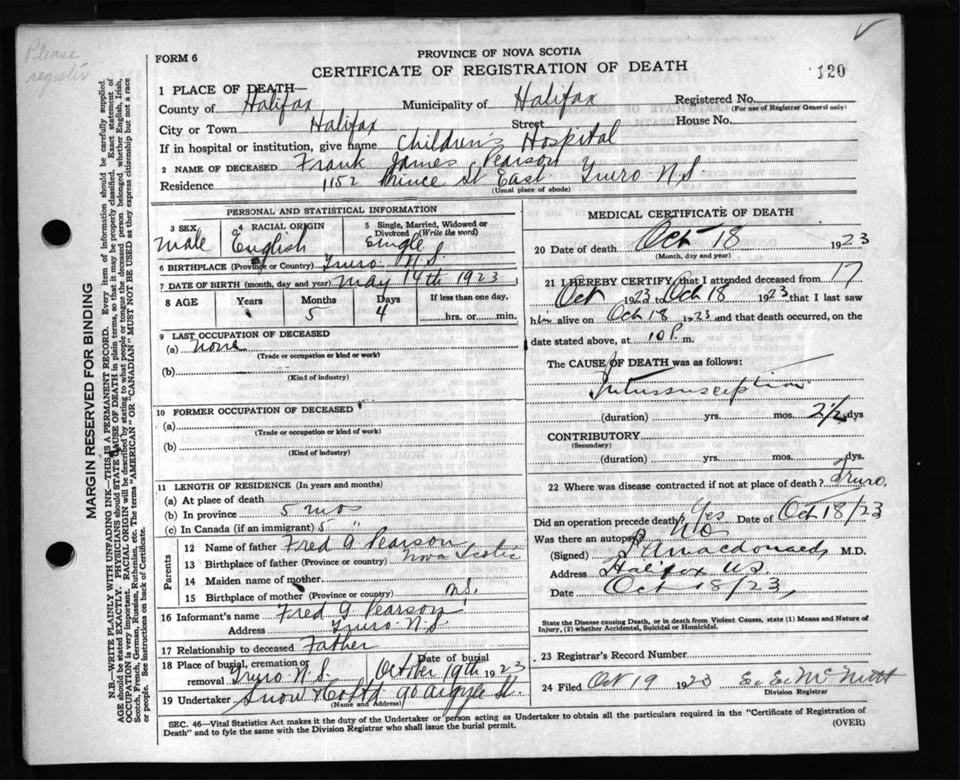 Please
register
FORM 6
PROVINCE OF NOVA SCOTIA
CERTIFICATE OF REGISTRATION OF DEATH
120
1 PLACE OF DEATH—
County of Halifax Municipality of Halifax Registered No.
(For use of Registrar General only)
City or Town Halifax Street House No.
If in hospital or institution, give name Children's Hospital
2 NAME OF DECEASED Frank James Pearson
Residence 1152 Prince St East Truro N.S
(Usual place of abode)
PERSONAL AND STATISTICAL INFORMATION
3 SEX 4 RACIAL ORIGIN 5 Single, Married, Widowed or Divorced (Write the word)
Male English Single
6 BIRTHPLACE (Province or Country) Truro N.S.
7 DATE OF BIRTH (month, day and year) May 14th 1923
8 AGE Years Months Days If less than one day,
5 4 hrs. or min.
9 LAST OCCUPATION OF DECEASED
(a) none
(Trade or occupation or kind of work)
(b)
(Kind of industry)
10 FORMER OCCUPATION OF DECEASED
(a)
(Trade or occupation or kind of work)
(b)
(Kind of industry)
11 LENGTH OF RESIDENCE (In years and months)
(a) At place of death
(b) In province 5 mos
(c) In Canada (if an immigrant) 5 "
Parents
12 Name of father Fred G Pearson
13 Birthplace of father (Province or country) Nova Scotia
14 Maiden name of mother
15 Birthplace of mother (Province or country) N.S.
16 Informant's name Fred G. Pearson
Address Truro N.S.
17 Relationship to deceased Father
18 Place of burial, cremation or removal Truro N.S. Date of burial October 19th 1923
19 Undertaker Snow & Co Ltd 90 Argyle St.
(Name and Address)
MEDICAL CERTIFICATE OF DEATH
20 Date of death Oct 18 1923
(Month, day and year)
21 I HEREBY CERTIFY, that I attended deceased from 17
Oct 1923 to Oct 18 1923 that I last saw
him alive on Oct 18 1923 and that death occurred, on the
date stated above, at 10 P. m.
The CAUSE OF DEATH was as follows:
Intussusception
(duration) yrs. mos. 2 1/2 dys
CONTRIBUTORY
(Secondary)
(duration) yrs. mos. dys.
22 Where was disease contracted if not at place of death? Truro.
Did an operation precede death? Yes Date of Oct 18/23
Was there an autopsy? No
(Signed) Macdonald M.D.
Address Halifax N.S.
Date Oct 18/23
State the Disease causing Death, or in death from Violent Causes, state (1) Means and Nature of Injury, (2) whether Accidental, Suicidal or Homicidal.
23 Registrar's Record Number
24 Filed Oct 19 1923 E. E. McNutt
Division Registrar
SEC. 46—Vital Statistics Act makes it the duty of the Undertaker or person acting as Undertaker to obtain all the particulars required in the "Certificate of Registration of
Death" and to fyle the same with the Division Registrar who shall issue the burial permit. (OVER)
MARGIN RESERVED FOR BINDING
N.B.—WRITE PLAINLY WITH UNFADING INK—THIS IS A PERMANENT RECORD. Every item of information should be carefully supplied.
AGE should be stated EXACTLY. PHYSICIANS should STATE CAUSE OF DEATH in plain terms, so that it may be properly classified. Exact statement of
OCCUPATION is very important. RACIAL ORIGIN will be described by stating to what people or tongue the deceased person belonged whether English, Irish,
Scotch, French, German, Russian, Ruthenian, etc. The terms "AMERICAN" OR "CANADIAN" MUST NOT BE USED as they express citizenship but not a race
or people. See instructions on back of Certificate.